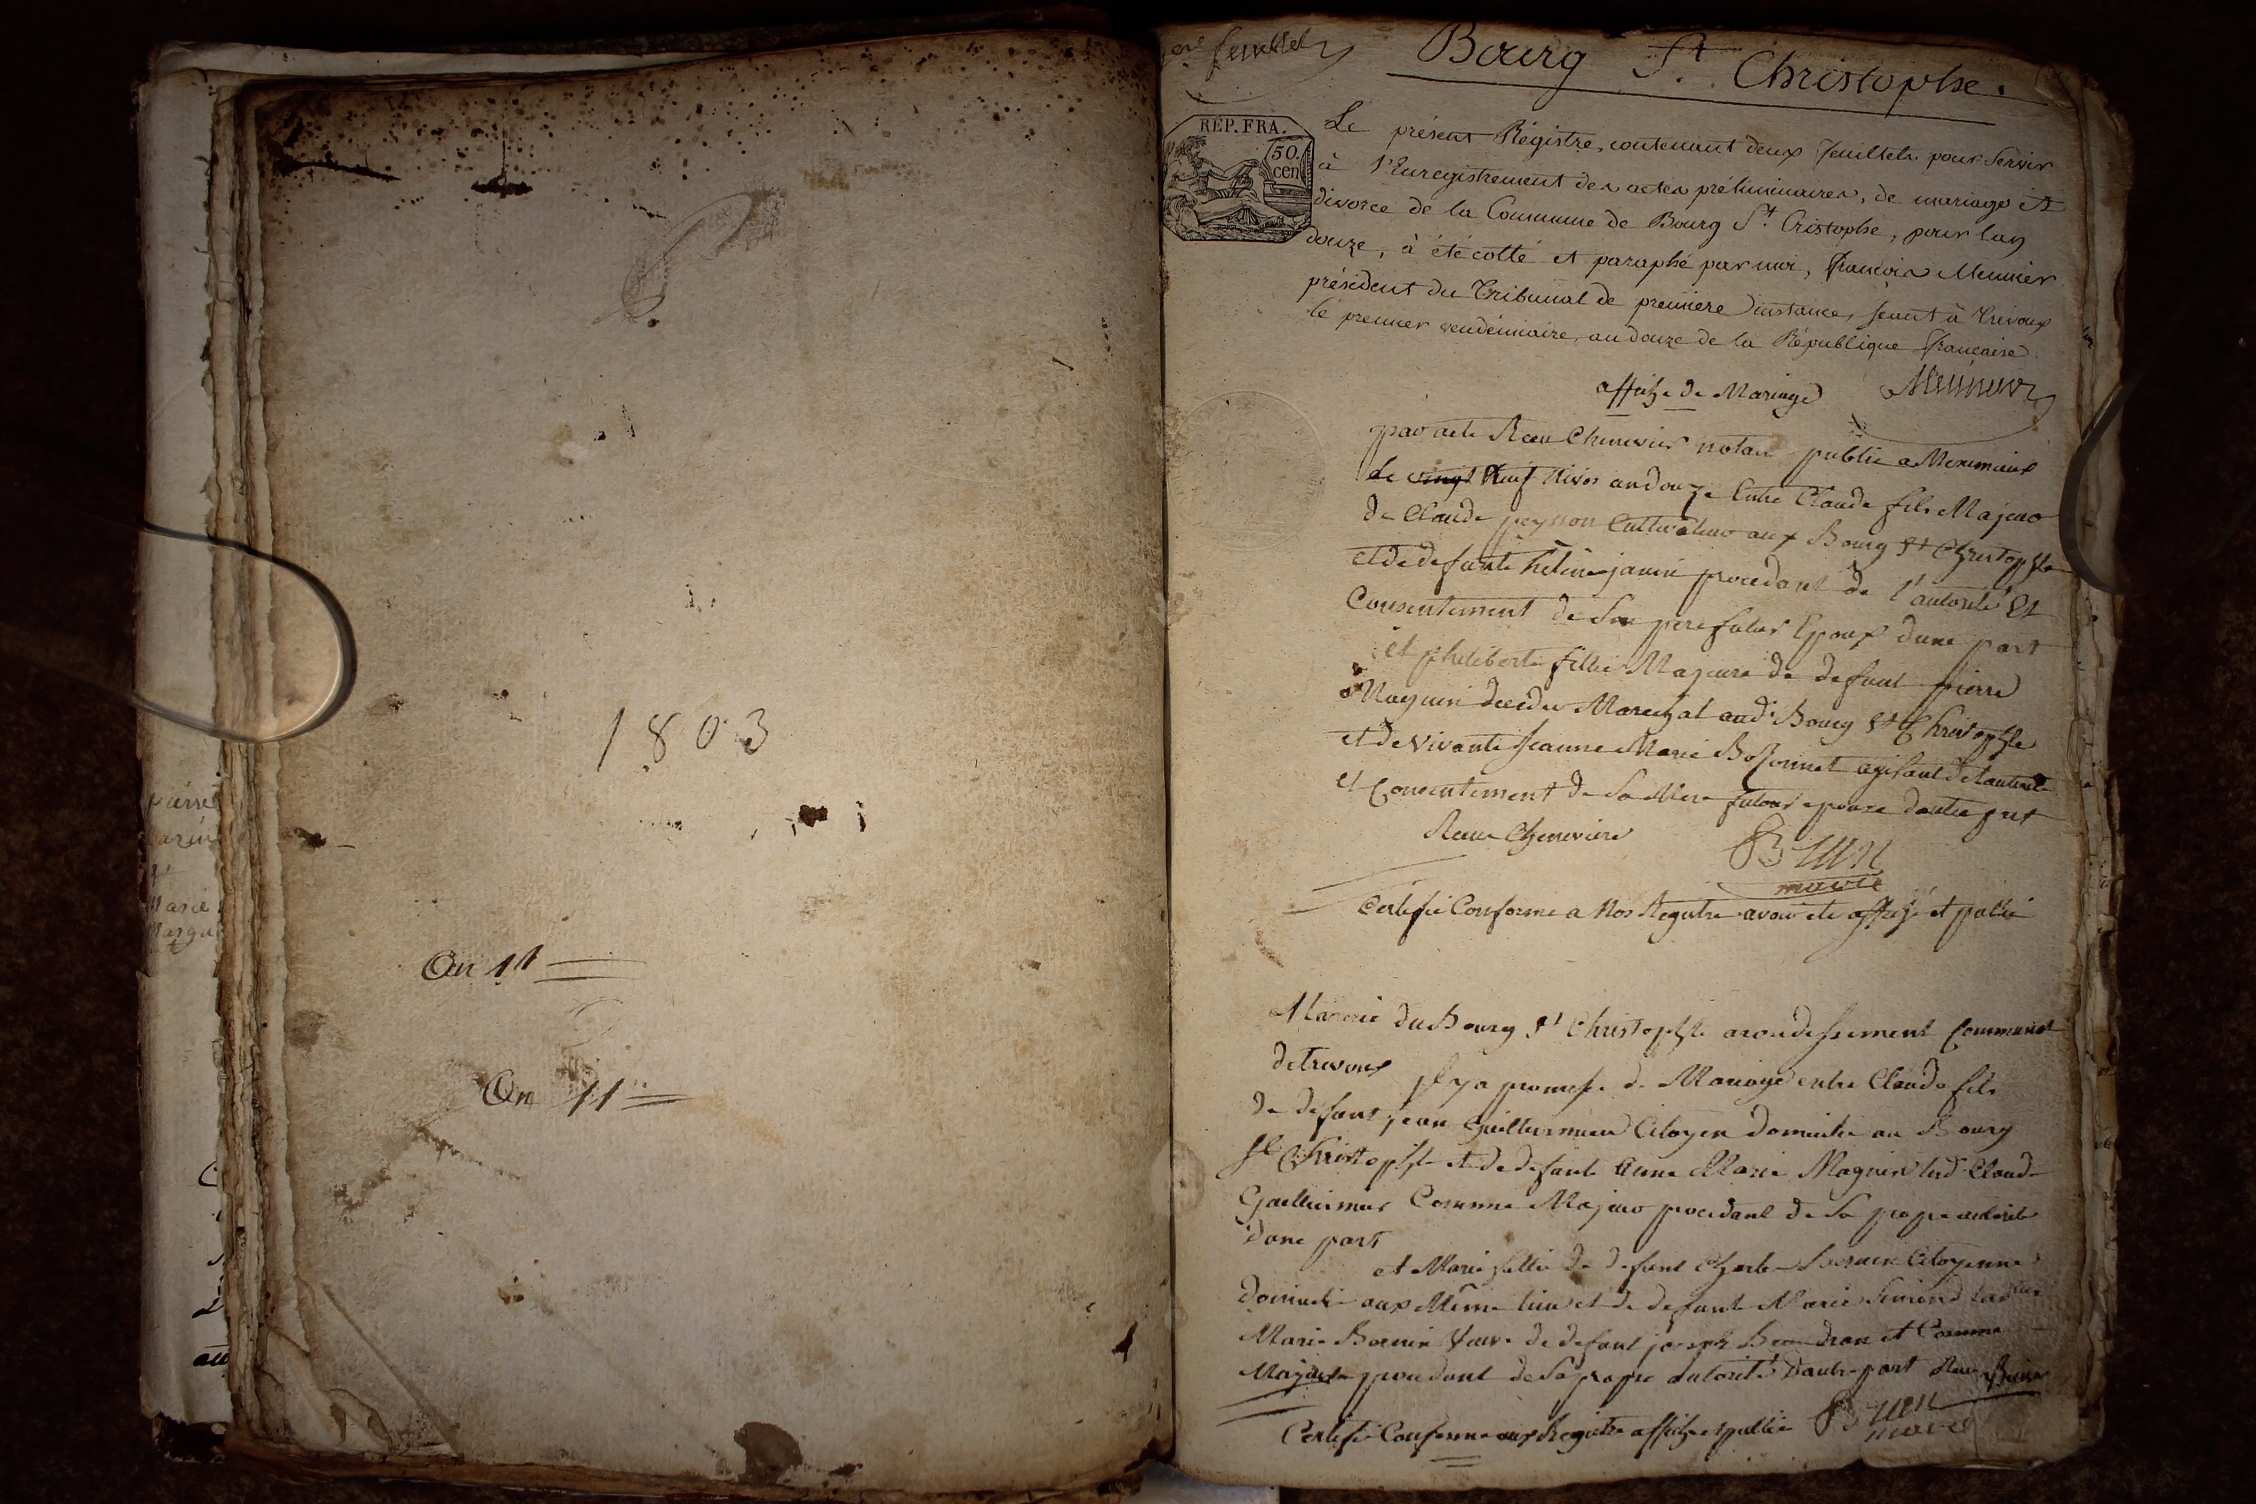 1803
An 11
An 11
pierre
Marie
feuillet
Bourg St. Christophe.
REP. FRA.
50.
cen
Le présent Régistre, contenant deux feuillets pour servir
à l'Enregistrement des actes préliminaires, de mariage et
divorce de la Commune de Bourg St. Cristophe, pour lan
douze, à été cotté et paraphé par moi, François Meunier
président du Tribunal de premiere instance, séant à Trevoux
le premier vendémiaire, an douze de la République française.
Meunier
affiche de Mariage
par acte Recu Chenevier notaire public a Meximieux
Le vingt Neuf Nivos an douze Entre Claude fils Majeur
de Claude peysson Cultivateur aux Bourg St Christophe
et de defunte héleine janin procedant de l'autorité Et
Consentement de Son pere futur Epoux dune part
et philiberte fillie Majeure de defunt pierre
Magnin Marechal aud. Bourg St Christophe
et de vivante Jeanne Marie Bozonnet agissant de lautorité
et Consentement de Sa Mere future epouse dautre part
Recu Chenevier
Brun
maire
Certifié Conforme a Nos Registre avoir ete affiché et publié
Mairie du Bourg St Christophe arondissement Communal
de trevoux il y a promesse de Mariage entre Claude fils
de defunt jean Guillermin Citoyen domicilié au Bourg
St Christophe et de defunte Anne Marie Magnin led. Claude
Guillermin Comme Majeur procedant de Sa propre autorité
dune part
et Marie fillie de defunt Citoyenne
domicilié aux Même lieu et de defunte Marie Simond
Marie veuve de defunt joseph et Comme
Majeure procedant de Sa propre autorité Dautre part
Certifié Conforme aux Registre affiché et publié
Brun
maire